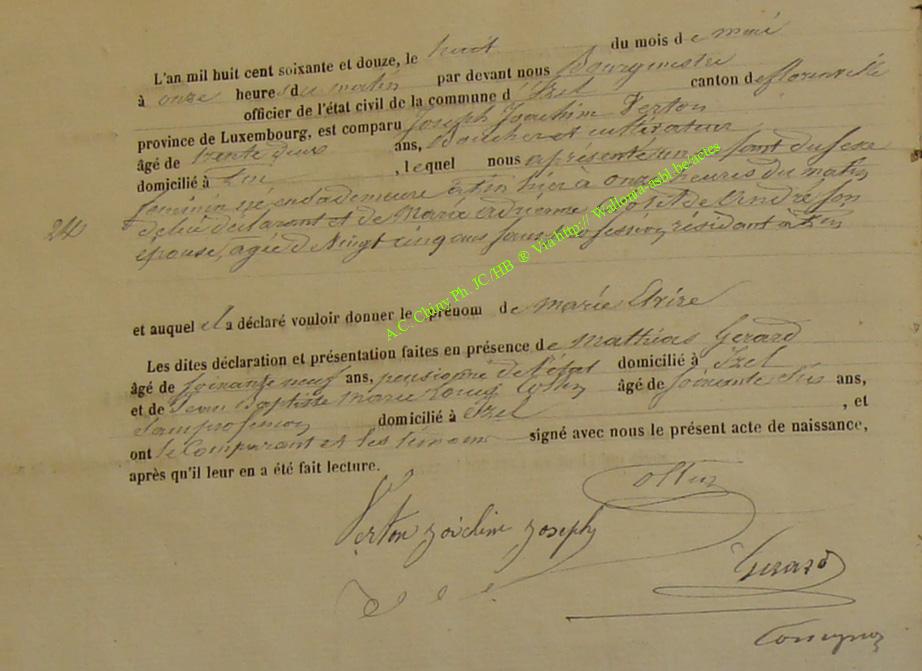 L'an mil huit cent soixante et douze, le huit du mois de mai
à onze heures du matin par devant nous Bourgmestre
officier de l'état civil de la commune d'Izel canton de florenville
province de Luxembourg, est comparu Joseph Joachim Verton
âgé de trente deux ans, Boucher et cultivateur
domicilié à , lequel nous a présenté un enfant du sexe
feminin né en sa demeure hier à onze heures du matin
24 de lui déclarant et de Marie Adrienne de André son
épouse, agée de Vingt cinq ans sans profession, résidant à
et auquel il a déclaré vouloir donner le prénom de Marie
Les dites déclaration et présentation faites en présence de Mathias Gerard
âgé de soixante neuf ans, pensionné de l'état domicilié à Izel
et de Jean Baptiste Marie Collin âgé de soixante ans,
sans profession domicilié à Izel , et
ont le Comparant et les témoins signé avec nous le présent acte de naissance,
après qu'il leur en a été fait lecture.
Collin
Verton Joseph
Gerard
A.C. Chiny Ph. JC/HB ® Via http:// Wallonia-asbl.be/actes